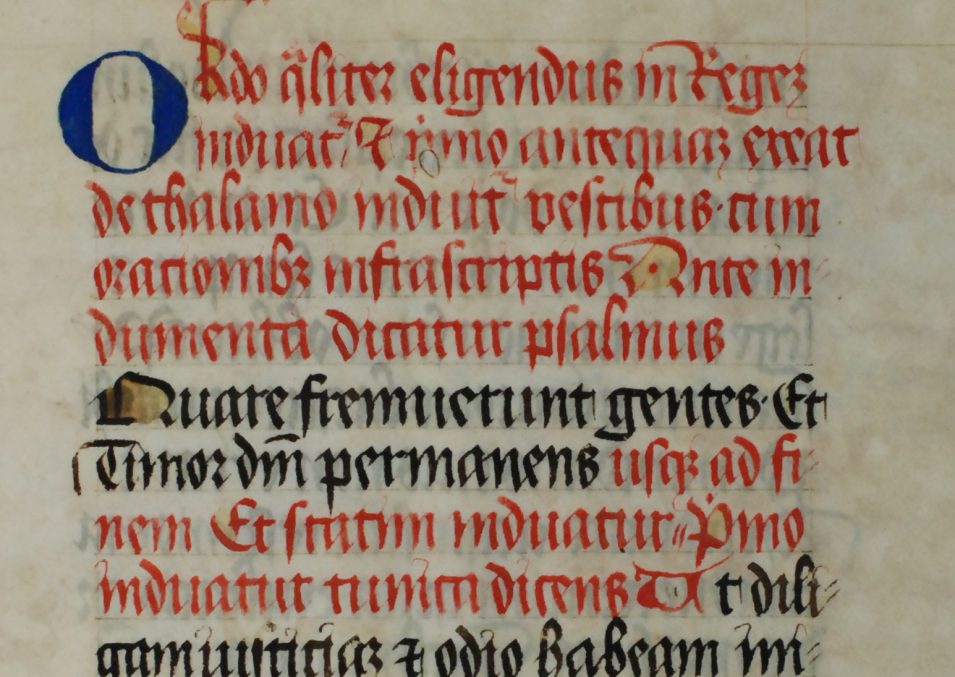 Ordo q̃liter eligendus in Regeʒ
induat᷑ ⁊ p̓mo antequaʒ exeat
de thalamo induit᷑ vestibus· cum
orationibꝫ infrascriptis Ante in-
dumenta dicatur psalmus
Quare fremuerunt gentes· Et
Timor dm̃ permanens usqꝫ ad fi-
nem Et statim induatur P̓mo
induatur tunica dicens Ut dili-
gam iusticiaʒ ⁊ odio habeam ini-